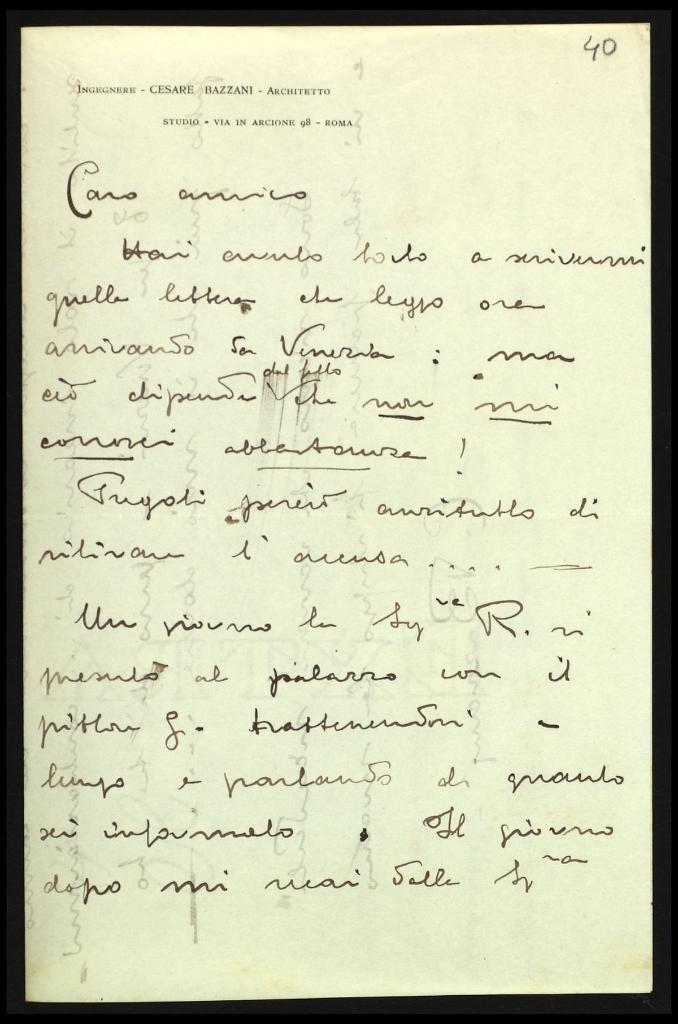 40
INGEGNERE - CESARE BAZZANI - ARCHITETTO
STUDIO - VIA IN ARCIONE 98 - ROMA
Caro amico
Hai avuto torto a scrivermi
quella lettera che leggo ora
arrivando da Venezia : ma
ciò dipende dal fatto che non mi
conosci abbastanza !
Pregoti perciò anzitutto di
ritirare l'accusa . . . . . —
Un giorno la Sigra R. si
presentò al palazzo con il
pittore G. trattenendosi a
lungo e parlando di quanto
sei informato . Il giorno
dopo mi recai dalla Sigra